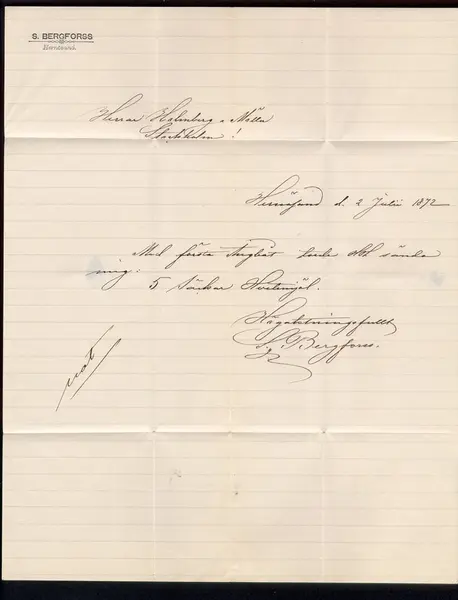 S. BERGFORSS
Hernösand.
Herrar Holmberg & Möller
Stockholm!
Hernösand d. 2 Julii 1872
Med första Ångbåt torde Hrr sända
mig:
5 säckar Hvetemjöl.
Högaktningsfullt
S. Bergforss.